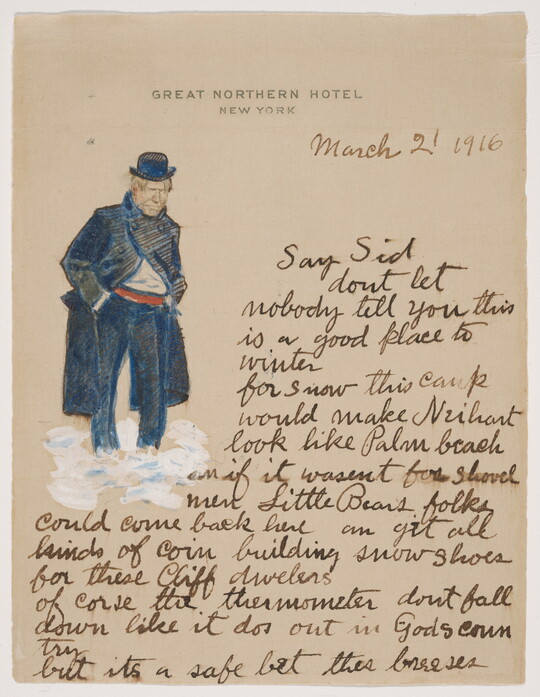 GREAT NORTHERN HOTEL
NEW YORK
March 21 1916
Say Sid
dont let
nobody tell you this
is a good place to
winter
for snow this camp
would make Neihart
look like Palm beach
an if it wasent for shovel
men Little Bears folks
could come back here an git all
kinds of coin building snow shoes
for these Cliff dwelers
of corse the thermometer dont fall
down like it dos out in Gods coun
try
but its a safe bet thes breeses